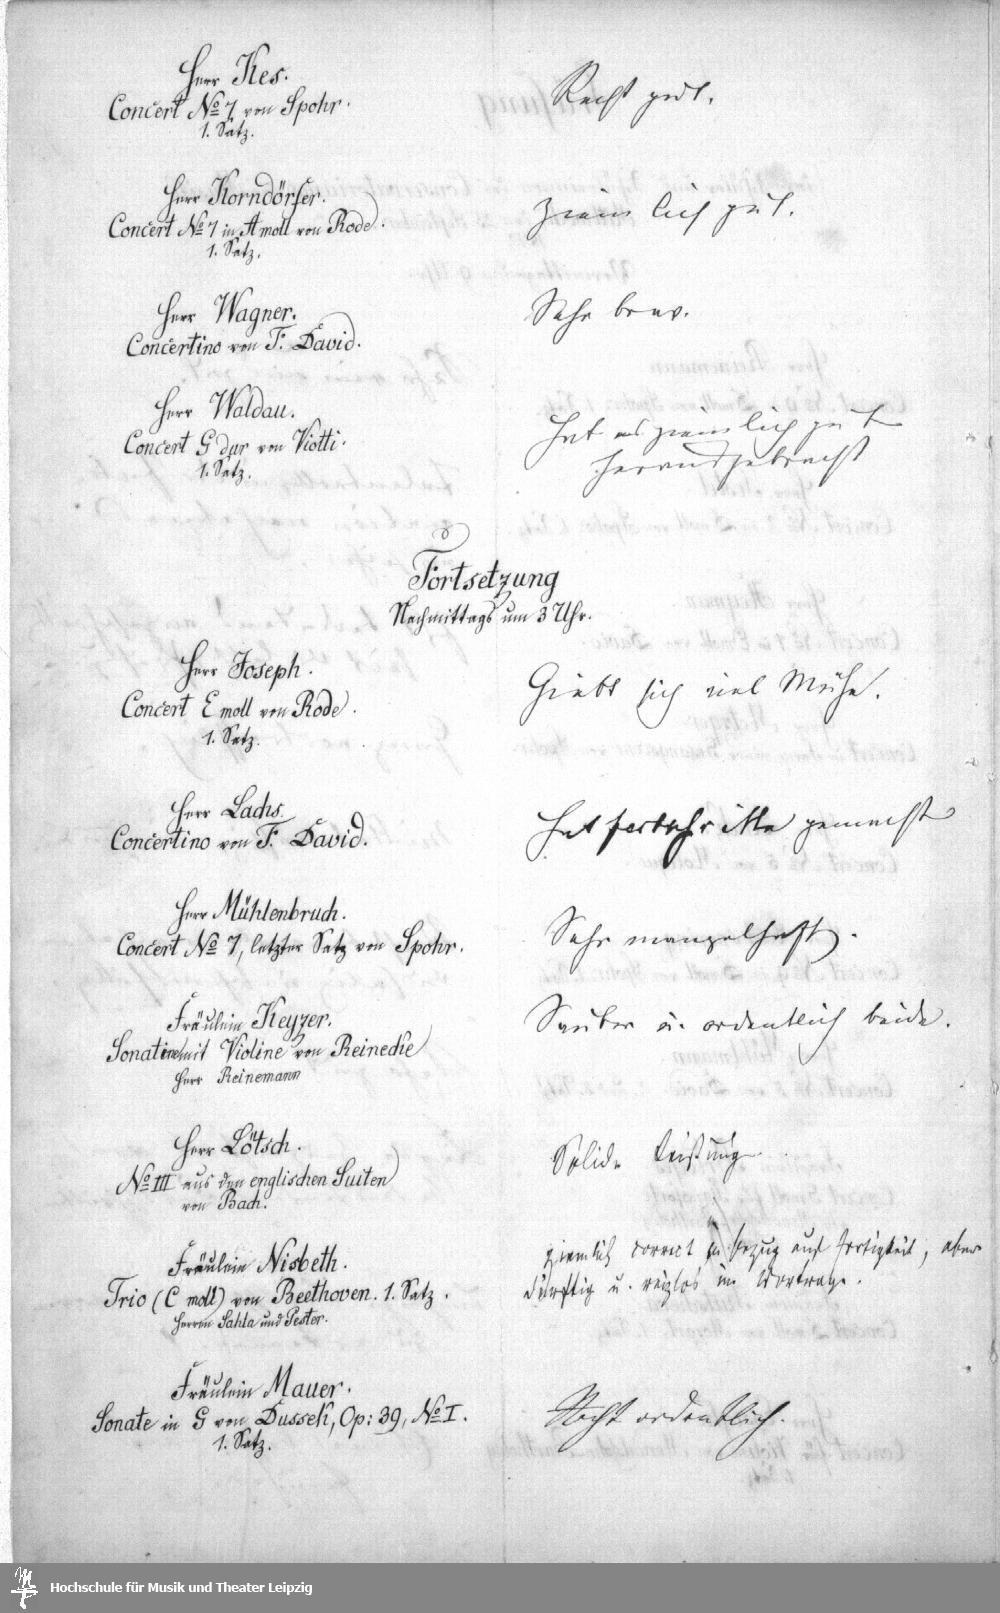 Herr Kes.
Concert No 7 von Spohr.
1. Satz.
Recht gut.
Herr Korndörfer.
Concert No 7 in A moll von Rode.
1. Satz.
Ziemlich gut.
Herr Wagner.
Concertino von F. David.
Sehr brav.
Herr Waldau.
Concert G dur von Viotti.
1. Satz.
Hat es ziemlich gut
herausgebracht
Fortsetzung
Nachmittags um 3 Uhr.
Herr Joseph.
Concert E moll von Rode.
1. Satz.
Giebt sich viel Mühe.
Herr Lachs.
Concertino von F. David.
Hat Fortschritte gemacht
Herr Mühlenbruch.
Concert No 7, letzter Satz von Spohr.
Sehr mangelhaft.
Fräulein Keyzer.
Sonatine mit Violine von Reinecke
Herr Reinemann
Sauber u. ordentlich beide.
Herr Lötsch.
No III aus den englischen Suiten
von Bach.
Solide Leistung.
Fräulein Nisbeth.
Trio (C moll) von Beethoven. 1. Satz.
Herren Sahla und Pester.
ziemlich correct in Bezug auf Fertigkeit, aber
dürftig u. reizlos im Vortrage.
Fräulein Mauer.
Sonate in G von Dussek, Op: 39, No I.
1. Satz.
Recht ordentlich.
Hochschule für Musik und Theater Leipzig